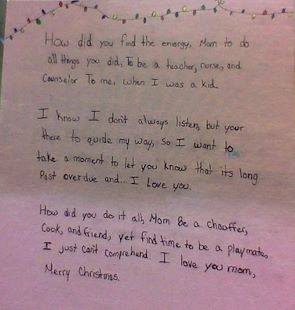 How did you find the energy, Mom to do
all things you did, To be a teacher, nurse, and
Counselor To me, when I was a kid.
I know I don't always listen, but your
there to guide my way, so I want to
take a moment to let you know that its long
Past overdue and... I Love you.
How did you do it all, Mom Be a Chauffer,
Cook, and friend, yet find time to be a playmate,
I just can't comprehend. I love you mom,
Merry Christmas.